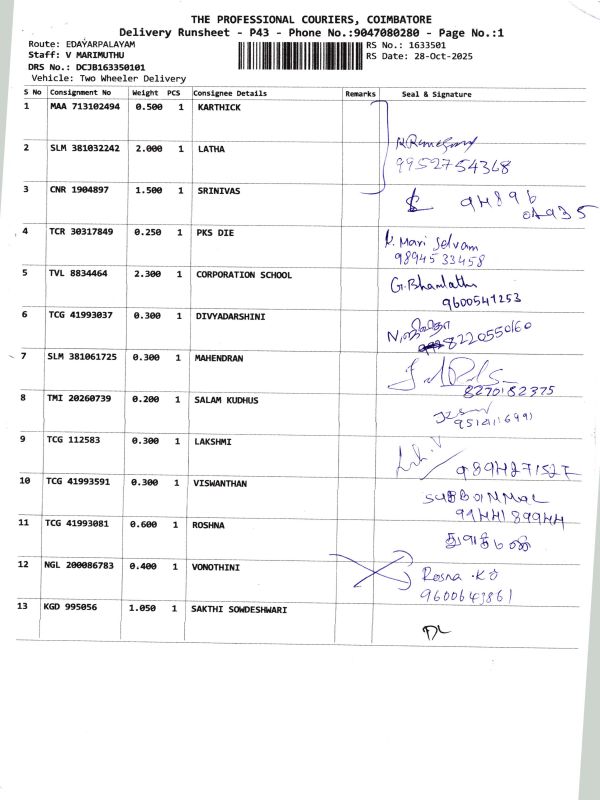 THE PROFESSIONAL COURIERS, COIMBATORE
Delivery Runsheet - P43 - Phone No.:9047080280 - Page No.:1
Route: EDAYARPALAYAM
RS No.: 1633501
Staff: V MARIMUTHU
RS Date: 28-Oct-2025
DRS No.: DCJB163350101
Vehicle: Two Wheeler Delivery
S No Consignment No Weight PCS Consignee Details Remarks Seal & Signature
1 MAA 713102494 0.500 1 KARTHICK
2 SLM 381032242 2.000 1 LATHA
9952754368
3 CNR 1904897 1.500 1 SRINIVAS
94896
4 TCR 30317849 0.250 1 PKS DIE
K. Mari Selvam
9894533458
5 TVL 8834464 2.300 1 CORPORATION SCHOOL
G.Bhamlathi
9600541253
6 TCG 41993037 0.300 1 DIVYADARSHINI
8220550160
7 SLM 381061725 0.300 1 MAHENDRAN
8270182375
8 TMI 20260739 0.200 1 SALAM KUDHUS
9 TCG 112583 0.300 1 LAKSHMI
9894271527
10 TCG 41993591 0.300 1 VISWANTHAN
9944189944
11 TCG 41993081 0.600 1 ROSHNA
12 NGL 200086783 0.400 1 VONOTHINI
Rosna .K
9600643861
13 KGD 995056 1.050 1 SAKTHI SOWDESHWARI